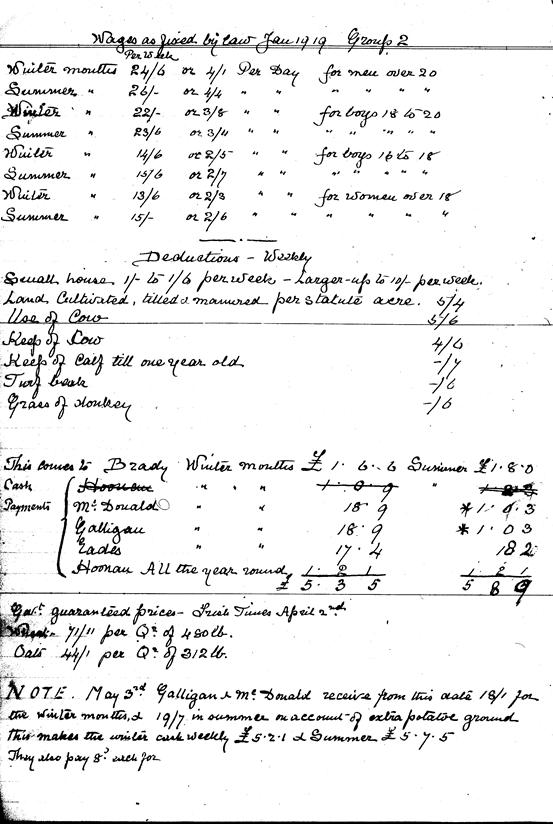 Wages as fixed by law Jan 1919 Group 2
Per Week
Winter months 24/6 or 4/1 Per Day for men over 20
Summer " 26/- or 4/4 " " " " " "
Winter " 22/- or 3/8 " " for boys 18 to 20
Summer " 23/6 or 3/11 " " " " " "
Winter " 14/6 or 2/5 " " for boys 16 to 18
Summer " 15/6 or 2/7 " " " " " "
Winter " 13/6 or 2/3 " " for women over 18
Summer " 15/- or 2/6 " " " " " "
Deductions - Weekly
Small house 1/- to 1/6 per week - Larger - up to 10/- per week.
Land Cultivated, tilled & manured per statute acre. 5/4
Use of Cow 5/6
Keep of Cow 4/6
Keep of Calf till one year old -/7
Turf bank -/6
Grass of donkey -/6
This comes to Brady Winter months £1.6.6 Summer £1.8.0
Cash Hoonan " " " 1.0.9 "
Payments McDonald " " 18 9 * 1.0.3
Galligan " " 18.9 * 1.0 3
Eades " " 17.4 18 2
Hoonan All the year round 1.2 1 1 2 1
£ 5.3 5 5 8 9
Govt. guaranteed prices - Irish Times April 2nd
Wheat - 71/11 per Qr of 480 lb.
Oats 44/1 per Qr of 312 lb.
NOTE. May 3rd Galligan & McDonald receive from this date 18/1 for
the winter months, & 19/7 in summer on account of extra potatoe ground
this makes the winter cash weekly £5.2.1 & Summer £5.7.5
They also pay each for